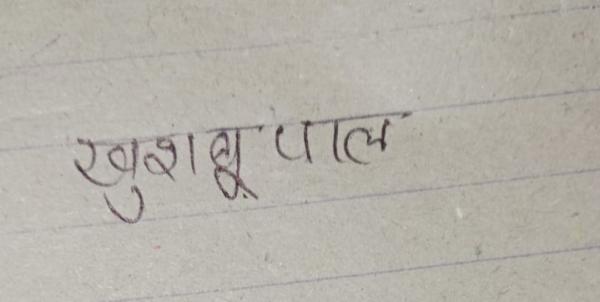 खुशबू पाल